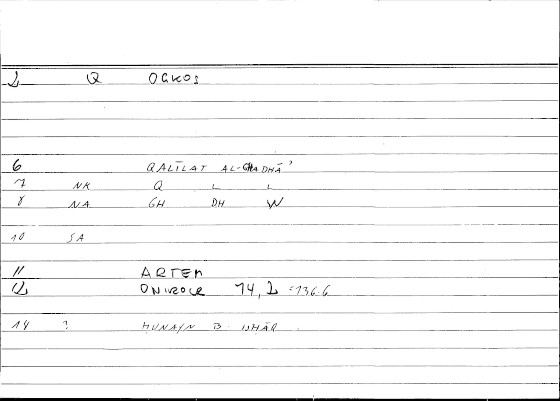 2 Q OGKOS
6 QALĪLAT AL-GHADHĀ'
7 NK Q L L
8 NA GH DH W
10 SA
11 ARTEM
12 ONIROCR 14, 2 = 136.6
14 ? HUNAYN B. ISHĀQ